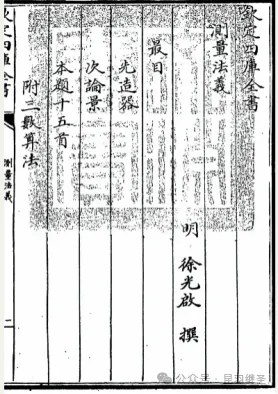 欽定四庫全書
測量法義
明 徐光啟 撰
最目
先造器
次論景
本題十五首
附三數算法
欽定四庫全書
測量法義
二
公众号·昆羽继圣